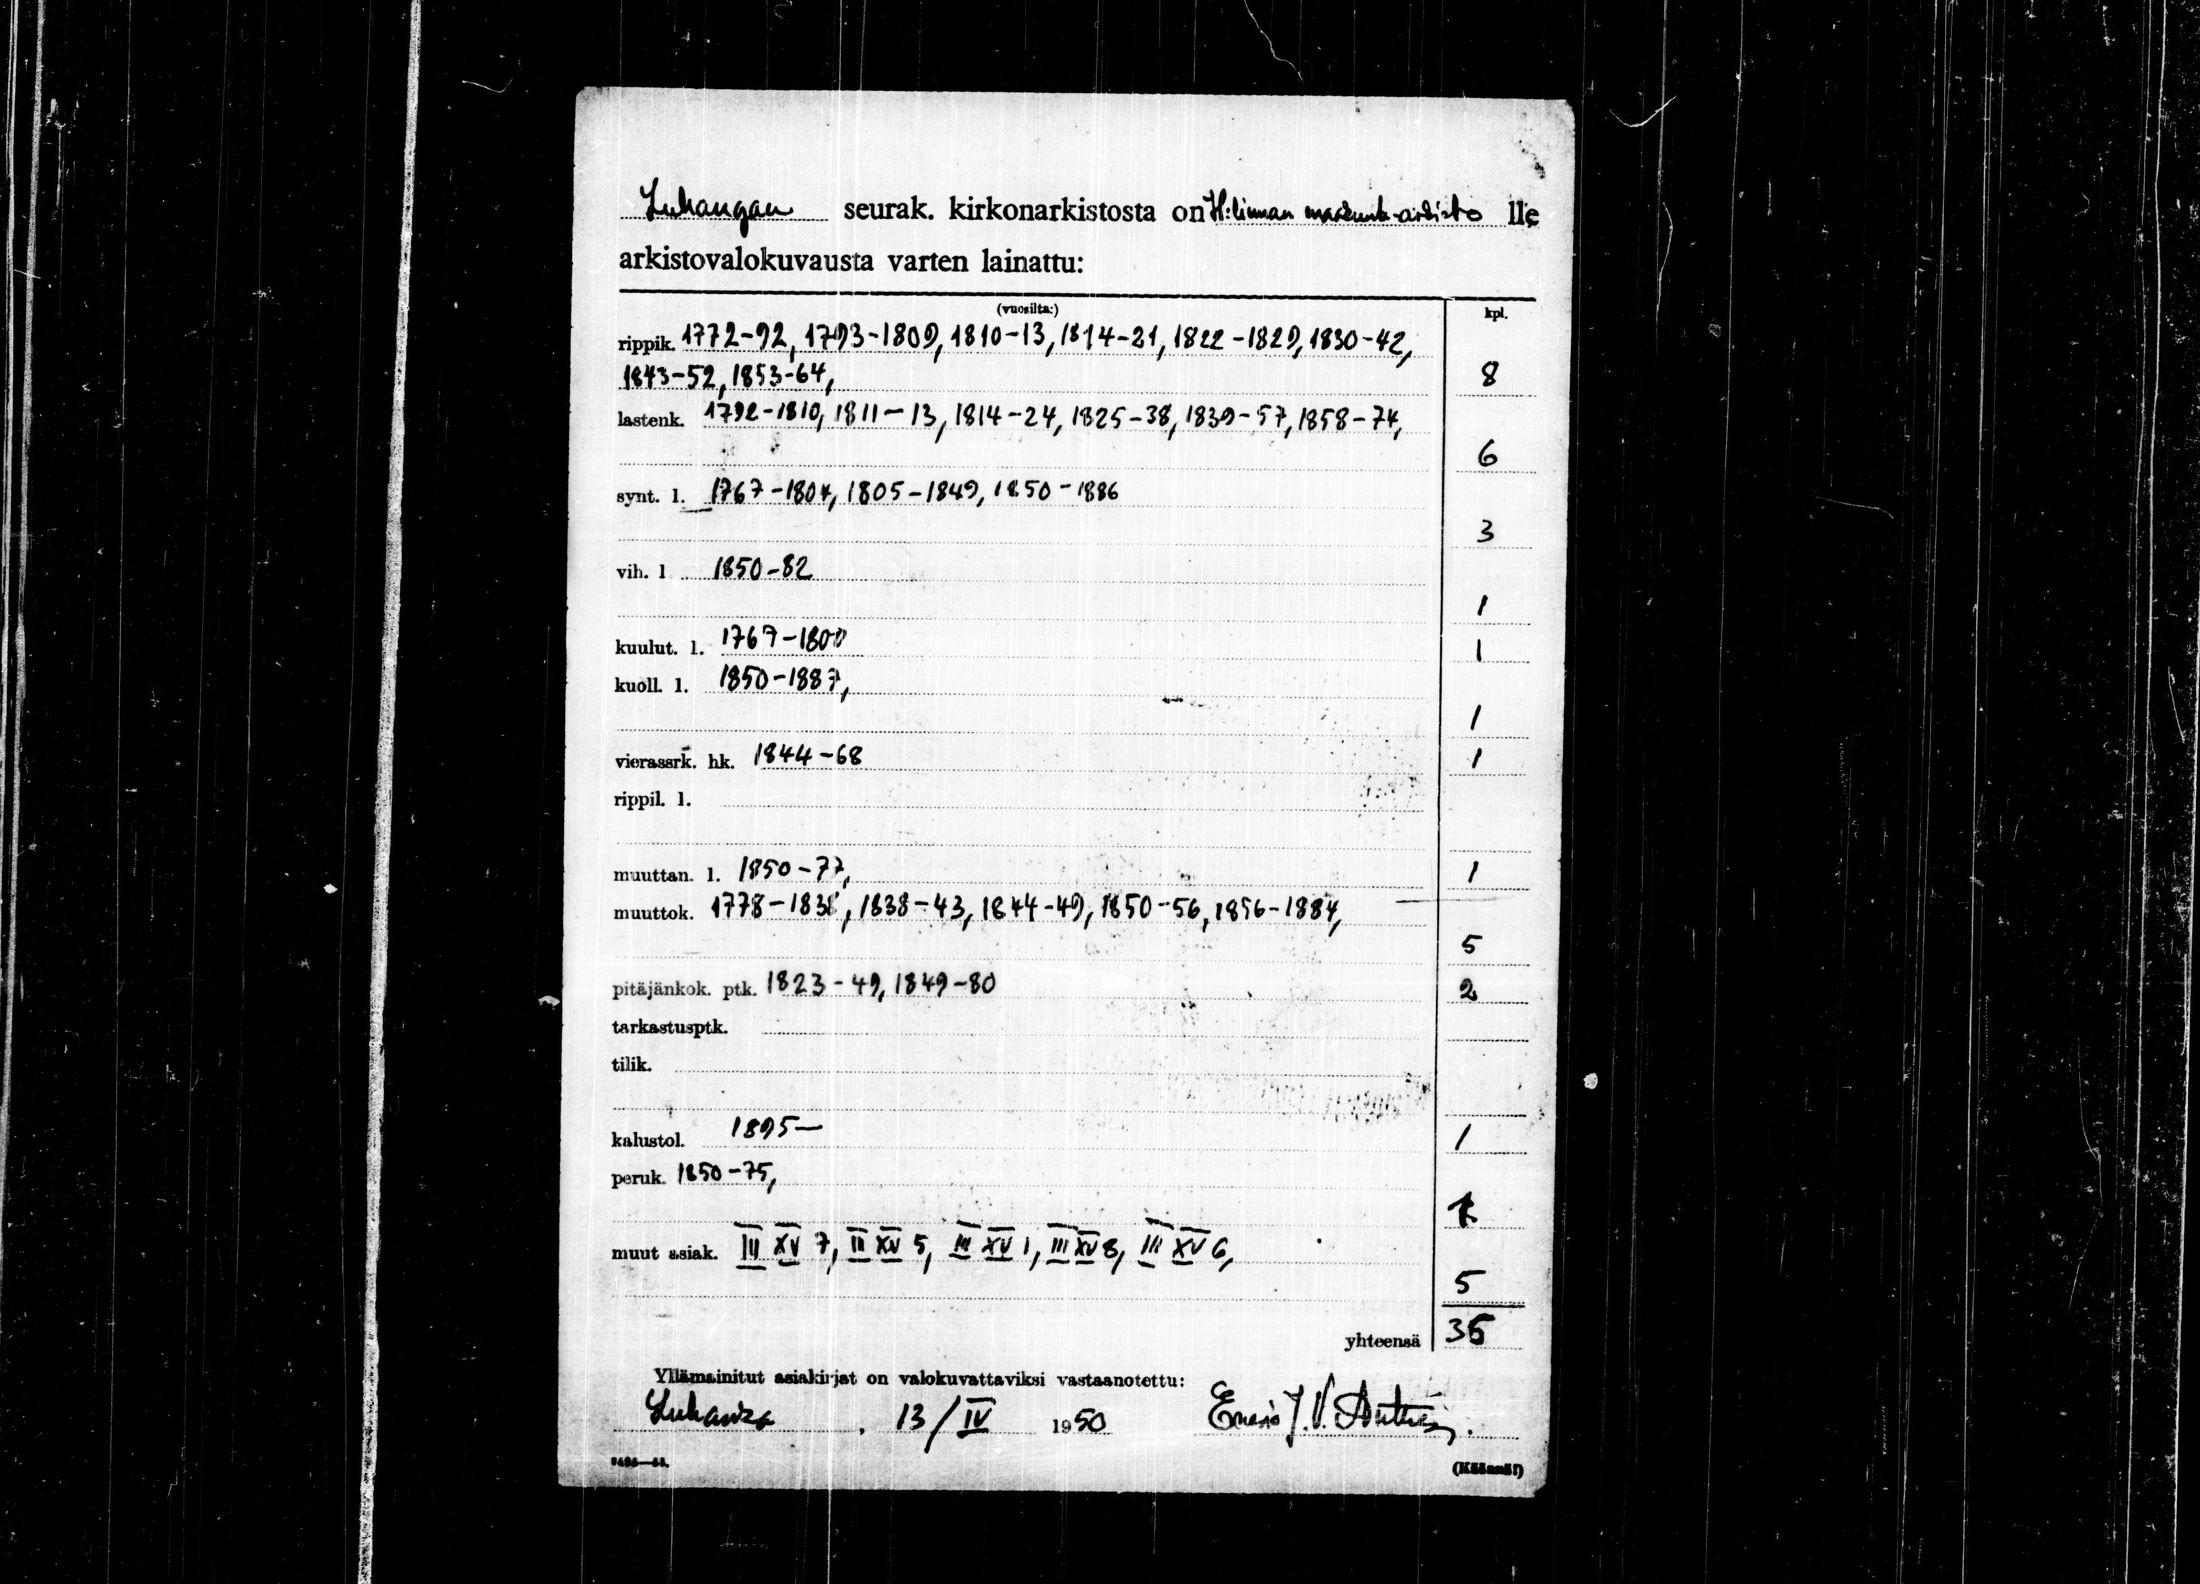 Luhangan seurak. kirkonarkistosta on H:linnan maakunta-arkisto lle
arkistovalokuvausta varten lainattu:
(vuosilta:) kpl.
rippik. 1772-92, 1793-1809, 1810-13, 1814-21, 1822-1829, 1830-42,
1843-52, 1853-64, 8
lastenk. 1792-1810, 1811-13, 1814-24, 1825-38, 1839-57, 1858-74,
6
synt. l. 1767-1804, 1805-1849, 1850-1886
3
vih. l 1850-82
1
kuulut. l. 1767-1800 1
kuoll. l. 1850-1887,
1
vierassrk. hk. 1844-68 1
rippil. l.
muuttan. l. 1850-77, 1
muuttok. 1778-1838, 1838-43, 1844-49, 1850-56, 1856-1884,
5
pitäjänkok. ptk. 1823-49, 1849-80 2
tarkastusptk.
tilik.
kalustol. 1895- 1
peruk. 1850-75,
1
muut asiak. III XV 7, II XV 5, III XV 1, III XV 8, III XV 6,
5
yhteensä 36
Yllämainitut asiakirjat on valokuvattaviksi vastaanotettu:
Luhanka, 13/IV 1950 J. V.
(Käännä!)